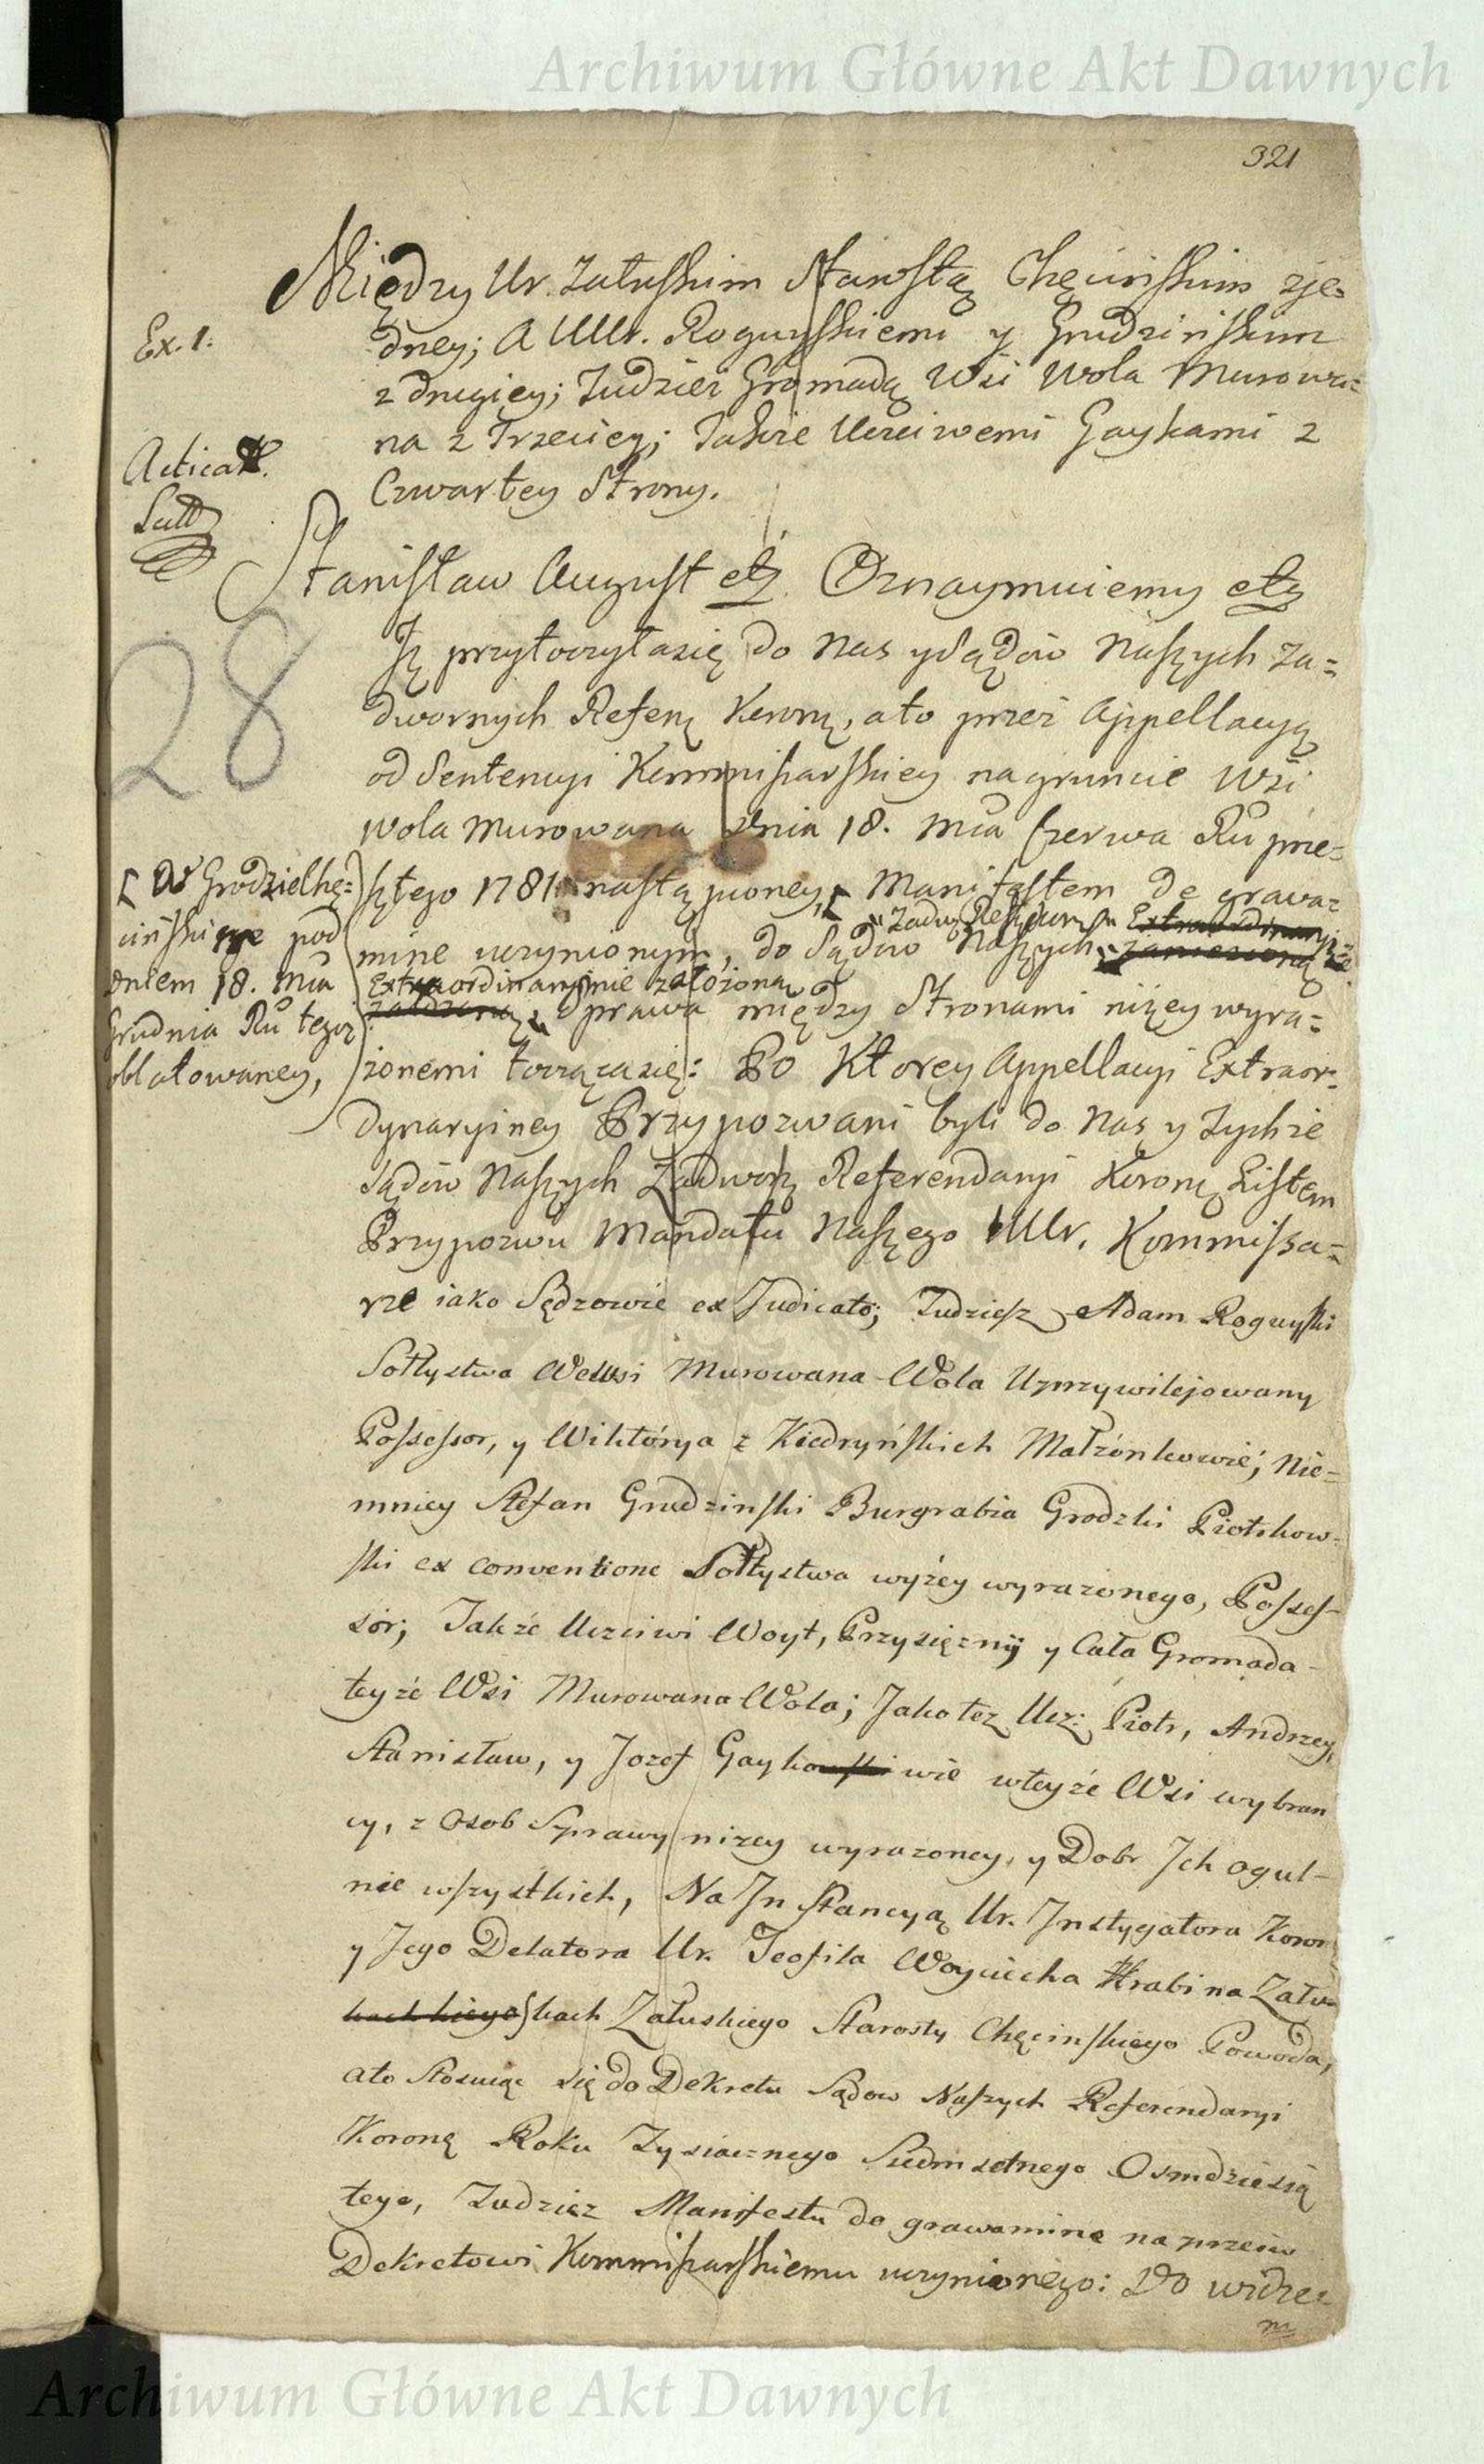 Archiwum Główne Akt Dawnych
321
Między Ur. Załuskim Starostą Chęcinskim zje=
dney; A UUr. Roguyskiemi y Grudzińskim
z drugiey; Tudzież Gromadą Wsi Wola Murowa=
na z Trzeciey; Także Uczciwemi Gaykami z
Czwartey Strony.
Ex. 1.
Acticat.
Stanisław August etz. Oznaymuiemy etz
Jż przytoczyła się do Nas y Sądów Naszych Za=
dwornych Referę Koronę, a to przez Appellacyą
od Sentencyi Kommissarskiey na gruncie Wsi
Wola Murowana dnia 18. Mca Czerwca Ru prze=
szłego 1781 nastąpioney, [ Manifestem de grava=
mine uczynionym, do Sądów Naszych
Extraordinaryjnie założona
Sprawa między Stronami niżey wyra=
żonemi tocząca się: Po Ktorey Appellacyi Extraor=
dynaryiney Przypozwani byli do Nas y Tychże
Sądów Naszych Zadworę Referendaryi Koronę Listem
Przypozwu Mandatu Naszego UUr. Kommissa=
rze iako Sędzowie ex Judicato; Tudziesz Adam Roguyski
Sołtystwa We Wsi Murowana Wola Uprzywilejowany
Possessor, y Wiktórya z Kiedryńskich Małżónkowie; Nie=
mniey Stefan Grudzinski Burgrabia Grodzki Piotrkow=
ski ex conventione Sołtystwa wyżey wyrażonego, Posses=
sor; Także Uczciwi Woyt, Przysiężnij y Cała Gromada
teyże Wsi Murowana Wola; Jako też Ucz: Piotr, Andrzey,
Stanisław, y Jozef Gaykowie wteyże Wsi wybran
cy, z Osob Sprawy niżey wyrażoney, y Dobr Jch ogul=
nie wszystkich, Na Jnstancyą Ur. Jnstygatora Koron
y Jego Delatora Ur. Teofila Woyciecha Hrabi na Zału=
skach Załuskiego Starosty Chęcinskiego Powoda,
a to Stosuiąc się do Dekretu Sądow Naszych Referendaryi
Koronę Roku Tysiacznego Siedmsetnego Osmdziesią
tego, Tudzież Manifestu de grawamine naprzeciw
Dekretowi Kommissarskiemu uczynionego: Do widze=
[ W Grodzie Chę=
cińskim pod
dniem 18. Mca
Grudnia Ru tegoż
oblatowaney,
28
Archiwum Główne Akt Dawnych